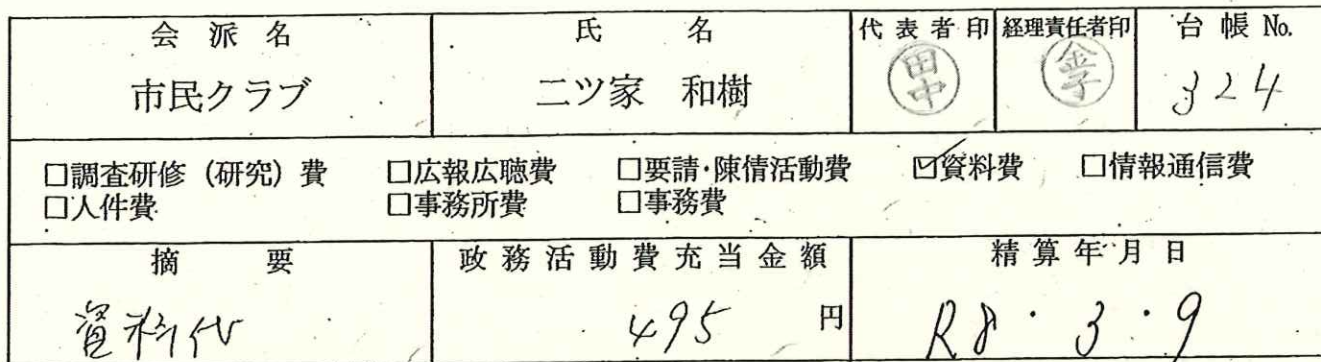 会派名 氏名 代表者印 経理責任者印 台帳No.
市民クラブ 二ツ家 和樹 田中 金子 324
□調査研修（研究）費 □広報広聴費 □要請・陳情活動費 ☑資料費 □情報通信費
□人件費 □事務所費 □事務費
摘要 政務活動費充当金額 精算年月日
資料代 495円 R8・3・9